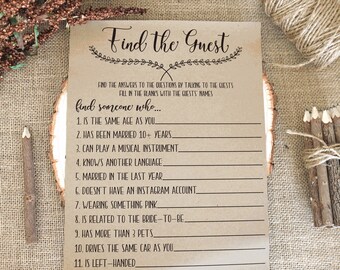 Find the Guest
FIND THE ANSWERS TO THE QUESTIONS BY TALKING TO THE GUESTS
FILL IN THE BLANKS WITH THE GUESTS' NAMES
find someone who...
1. IS THE SAME AGE AS YOU
2. HAS BEEN MARRIED 10+ YEARS
3. CAN PLAY A MUSICAL INSTRUMENT
4. KNOWS ANOTHER LANGUAGE
5. MARRIED IN THE LAST YEAR
6. DOESN'T HAVE AN INSTAGRAM ACCOUNT
7. WEARING SOMETHING PINK
8. IS RELATED TO THE BRIDE-TO-BE
9. HAS MORE THAN 3 PETS
10. DRIVES THE SAME CAR AS YOU
11. IS LEFT-HANDED